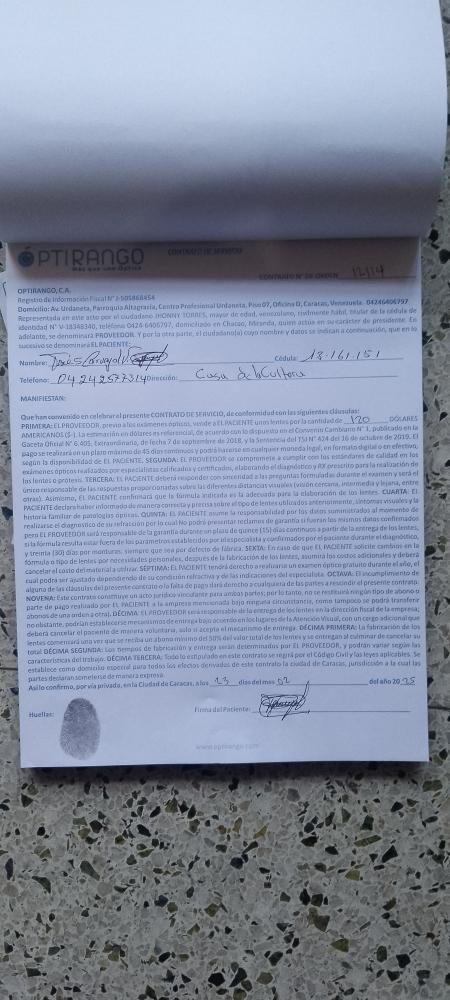 ÓPTIRANGO
Más que una Óptica
CONTRATO DE SERVICIO
CONTRATO N° DE ORDEN 12114
OPTIRANGO, C.A.
Registro de Información Fiscal N° J-505868454
Domicilio: Av. Urdaneta, Parroquia Altagracia, Centro Profesional Urdaneta, Piso 07, Oficina D, Caracas, Venezuela. 04246406797
Representada en este acto por el ciudadano JHONNY TORRES, mayor de edad, venezolano, civilmente hábil, titular de la cédula de
identidad N° V-18348340, teléfono 0424-6406797, domiciliado en Chacao, Miranda, quien actúa en su carácter de presidente. En
adelante, se denominará PROVEEDOR. Y por la otra parte, el ciudadano(a) cuyo nombre y datos se indican a continuación, que en lo
sucesivo se denominará EL PACIENTE:
Nombre: Cédula: 13.161.151
Teléfono: 04242577314 Dirección: Casa de la Cultura
MANIFIESTAN:
Que han convenido en celebrar el presente CONTRATO DE SERVICIO, de conformidad con las siguientes cláusulas:
PRIMERA: EL PROVEEDOR, previo a los exámenes ópticos, vende a EL PACIENTE unos lentes por la cantidad de 120 DÓLARES
AMERICANOS ($-). La estimación en dólares es referencial, de acuerdo con lo dispuesto en el Convenio Cambiario N° 1, publicado en la
Gaceta Oficial N° 6.405, Extraordinaria, de fecha 7 de septiembre de 2018, y la Sentencia del TSJ N° 424 del 16 de octubre de 2019. El
pago se realizará en un plazo máximo de 45 días continuos y podrá hacerse en cualquier moneda legal, en formato digital o en efectivo,
según la disponibilidad de EL PACIENTE. SEGUNDA: EL PROVEEDOR se compromete a cumplir con los estándares de calidad en los
exámenes ópticos realizados por especialistas calificados y certificados, elaborando el diagnóstico y RX prescrito para la realización de
los lentes o prótesis. TERCERA: EL PACIENTE deberá responder con sinceridad a las preguntas formuladas durante el examen y será el
único responsable de las respuestas proporcionadas sobre las diferentes distancias visuales (visión cercana, intermedia y lejana, entre
otras). Asimismo, EL PACIENTE confirmará que la fórmula indicada es la adecuada para la elaboración de los lentes. CUARTA: El
PACIENTE declara haber informado de manera correcta y precisa sobre el tipo de lentes utilizados anteriormente, síntomas visuales y la
historia familiar de patologías ópticas. QUINTA: EL PACIENTE asume la responsabilidad por los datos suministrados al momento de
realizarse el diagnóstico de su refracción por lo cual No podrá presentar reclamos de garantía si fueran los mismos datos confirmados
pero EL PROVEEDOR será responsable de la garantía durante un plazo de quince (15) días continuos a partir de la entrega de los lentes,
si la fórmula resulta estar fuera de los parametros establecidos por el especialista y confirmados por el paciente durante el diagnóstico,
y treinta (30) días por monturas, siempre que sea por defecto de fábrica. SEXTA: En caso de que EL PACIENTE solicite cambios en la
fórmula o tipo de lentes por necesidades personales, después de la fabricación de los lentes, asumirá los costos adicionales y deberá
cancelar el costo del material a utilizar. SÉPTIMA: EL PACIENTE tendrá derecho a realizarse un examen óptico gratuito durante el año, el
cual podrá ser ajustado dependiendo de su condición refractiva y de las indicaciones del especialista. OCTAVA: El incumplimiento de
alguna de las cláusulas del presente contrato o la falta de pago dará derecho a cualquiera de las partes a rescindir el presente contrato.
NOVENA: Este contrato constituye un acto jurídico vinculante para ambas partes; por lo tanto, no se restituirá ningún tipo de abono o
parte de pago realizado por EL PACIENTE a la empresa mencionada bajo ninguna circunstancia, como tampoco se podrá transferir
abonos de una orden a otra). DÉCIMA: EL PROVEEDOR será responsable de la entrega de los lentes en la dirección fiscal de la empresa;
no obstante, podrían establecerse mecanismos de entrega bajo acuerdo en los lugares de la Atención Visual, con un cargo adicional que
deberá cancelar el paciente de manera voluntaria, solo si acepta el mecanismo de entrega. DÉCIMA PRIMERA: La fabricación de los
lentes comenzará una vez que se reciba un abono mínimo del 50% del valor total de los lentes y se entregan al culminar de cancelar su
total DÉCIMA SEGUNDA: Los tiempos de fabricación y entrega serán determinados por EL PROVEEDOR, y podrán variar según las
características del trabajo. DÉCIMA TERCERA: Todo lo estipulado en este contrato se regirá por el Código Civil y las leyes aplicables. Se
establece como domicilio especial para todos los efectos derivados de este contrato la ciudad de Caracas, jurisdicción a la cual las
partes declaran someterse de manera expresa.
Así lo confirmo, por vía privada, en la Ciudad de Caracas, a los 13 días del mes 02 del año 2025
Huellas: Firma del Paciente:
www.optirango.com